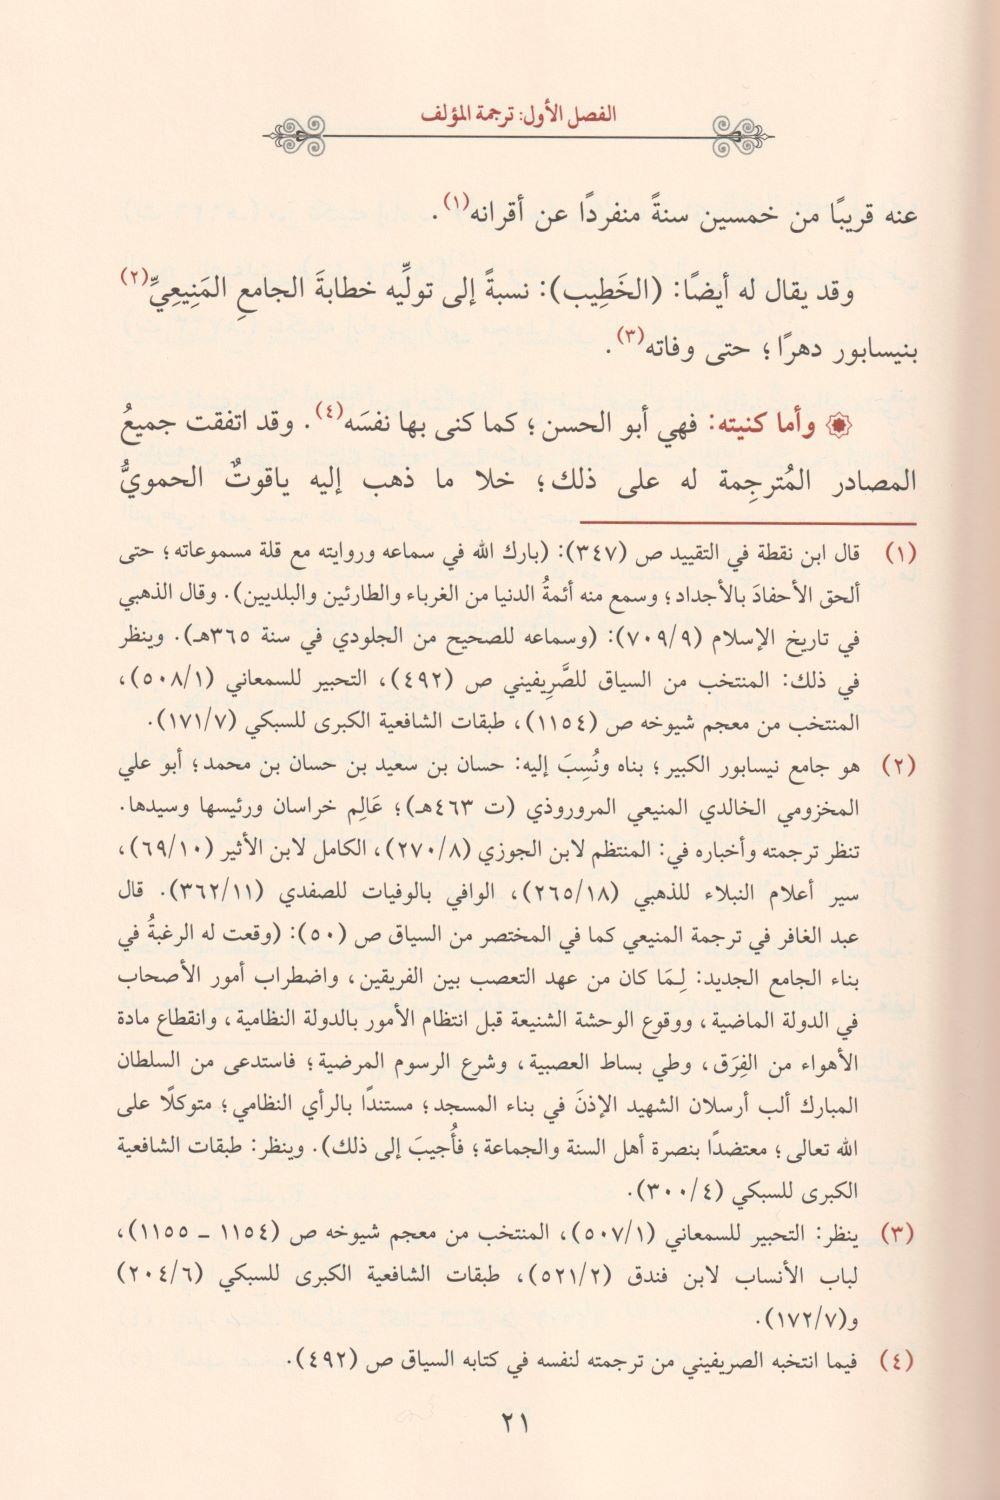 الفصل الأول: ترجمة المؤلف
عنه قريبًا من خمسين سنةً منفردًا عن أقرانه(١).
وقد يقال له أيضًا: (الخَطِيب): نسبةً إلى تولِّيه خطابةَ الجامعِ المَنِيعِيِّ(٢)
بنيسابور دهرًا؛ حتى وفاته(٣).
وأما كنيته: فهي أبو الحسن؛ كما كنى بها نفسَه(٤). وقد اتفقت جميعُ
المصادر المُترجِمة له على ذلك؛ خلا ما ذهب إليه ياقوتٌ الحمويُّ
(١) قال ابن نقطة في التقييد ص (٣٤٧): (بارك الله في سماعه وروايته مع قلة مسموعاته؛ حتى
ألحق الأحفادَ بالأجداد؛ وسمع منه أئمةُ الدنيا من الغرباء والطارئين والبلديين). وقال الذهبي
في تاريخ الإسلام (٧٠٩/٩): (وسماعه للصحيح من الجلودي في سنة ٣٦٥هـ). وينظر
في ذلك: المنتخب من السياق للصَّرِيفيني ص (٤٩٢)، التحبير للسمعاني (٥٠٨/١)،
المنتخب من معجم شيوخه ص (١١٥٤)، طبقات الشافعية الكبرى للسبكي (١٧١/٧).
(٢) هو جامع نيسابور الكبير؛ بناه ونُسِبَ إليه: حسان بن سعيد بن حسان بن محمد؛ أبو علي
المخزومي الخالدي المنيعي المروروذي (ت ٤٦٣هـ)؛ عَالِم خراسان ورئيسها وسيدها.
تنظر ترجمته وأخباره في: المنتظم لابن الجوزي (٢٧٠/٨)، الكامل لابن الأثير (٦٩/١٠)،
سير أعلام النبلاء للذهبي (٢٦٥/١٨)، الوافي بالوفيات للصفدي (٣٦٢/١١). قال
عبد الغافر في ترجمة المنيعي كما في المختصر من السياق ص (٥٠): (وقعت له الرغبةُ في
بناء الجامع الجديد: لِـمَا كان من عهد التعصب بين الفريقين، واضطراب أمور الأصحاب
في الدولة الماضية، ووقوع الوحشة الشنيعة قبل انتظام الأمور بالدولة النظامية، وانقطاع مادة
الأهواء من الفِرَق، وطي بساط العصبية، وشرع الرسوم المرضية؛ فاستدعى من السلطان
المبارك ألب أرسلان الشهيد الإذنَ في بناء المسجد؛ مستندًا بالرأي النظامي؛ متوكلًا على
الله تعالى؛ معتضدًا بنصرة أهل السنة والجماعة؛ فأُجيبَ إلى ذلك). وينظر: طبقات الشافعية
الكبرى للسبكي (٣٠٠/٤).
(٣) ينظر: التحبير للسمعاني (٥٠٧/١)، المنتخب من معجم شيوخه ص (١١٥٤ ـ ١١٥٥)،
لباب الأنساب لابن فندق (٥٢١/٢)، طبقات الشافعية الكبرى للسبكي (٢٠٤/٦)
و(١٧٢/٧).
(٤) فيما انتخبه الصريفيني من ترجمته لنفسه في كتابه السياق ص (٤٩٢).
٢١